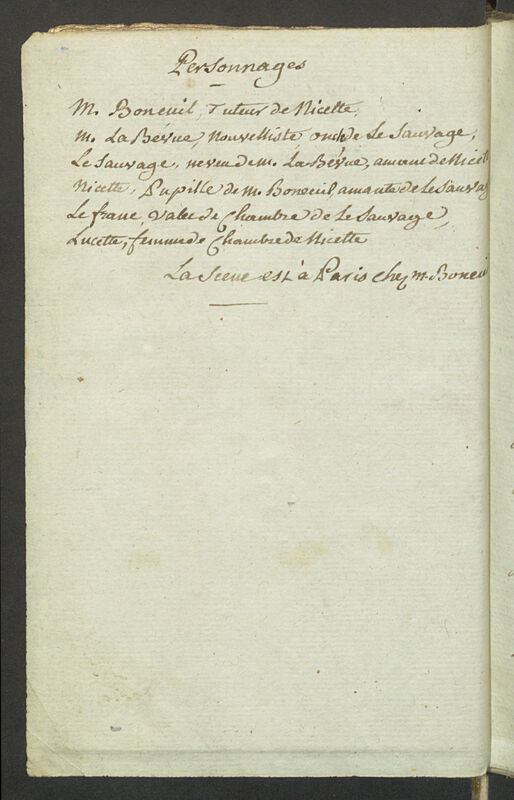 Personnages
M. Boneuil, Tuteur de Nicette,
M. La Bévue, Nouvelliste oncle de Le Sauvage,
Le Sauvage, neveu de M. La Bévue, amant de Nicet
Nicette, Pupille de M. Boneuil, amante de Le Sauvag
Le franc, Valet de Chambre de Le Sauvage,
Lucette, femme de Chambre de Nicette
La Scene est à Paris chez M. Boneui